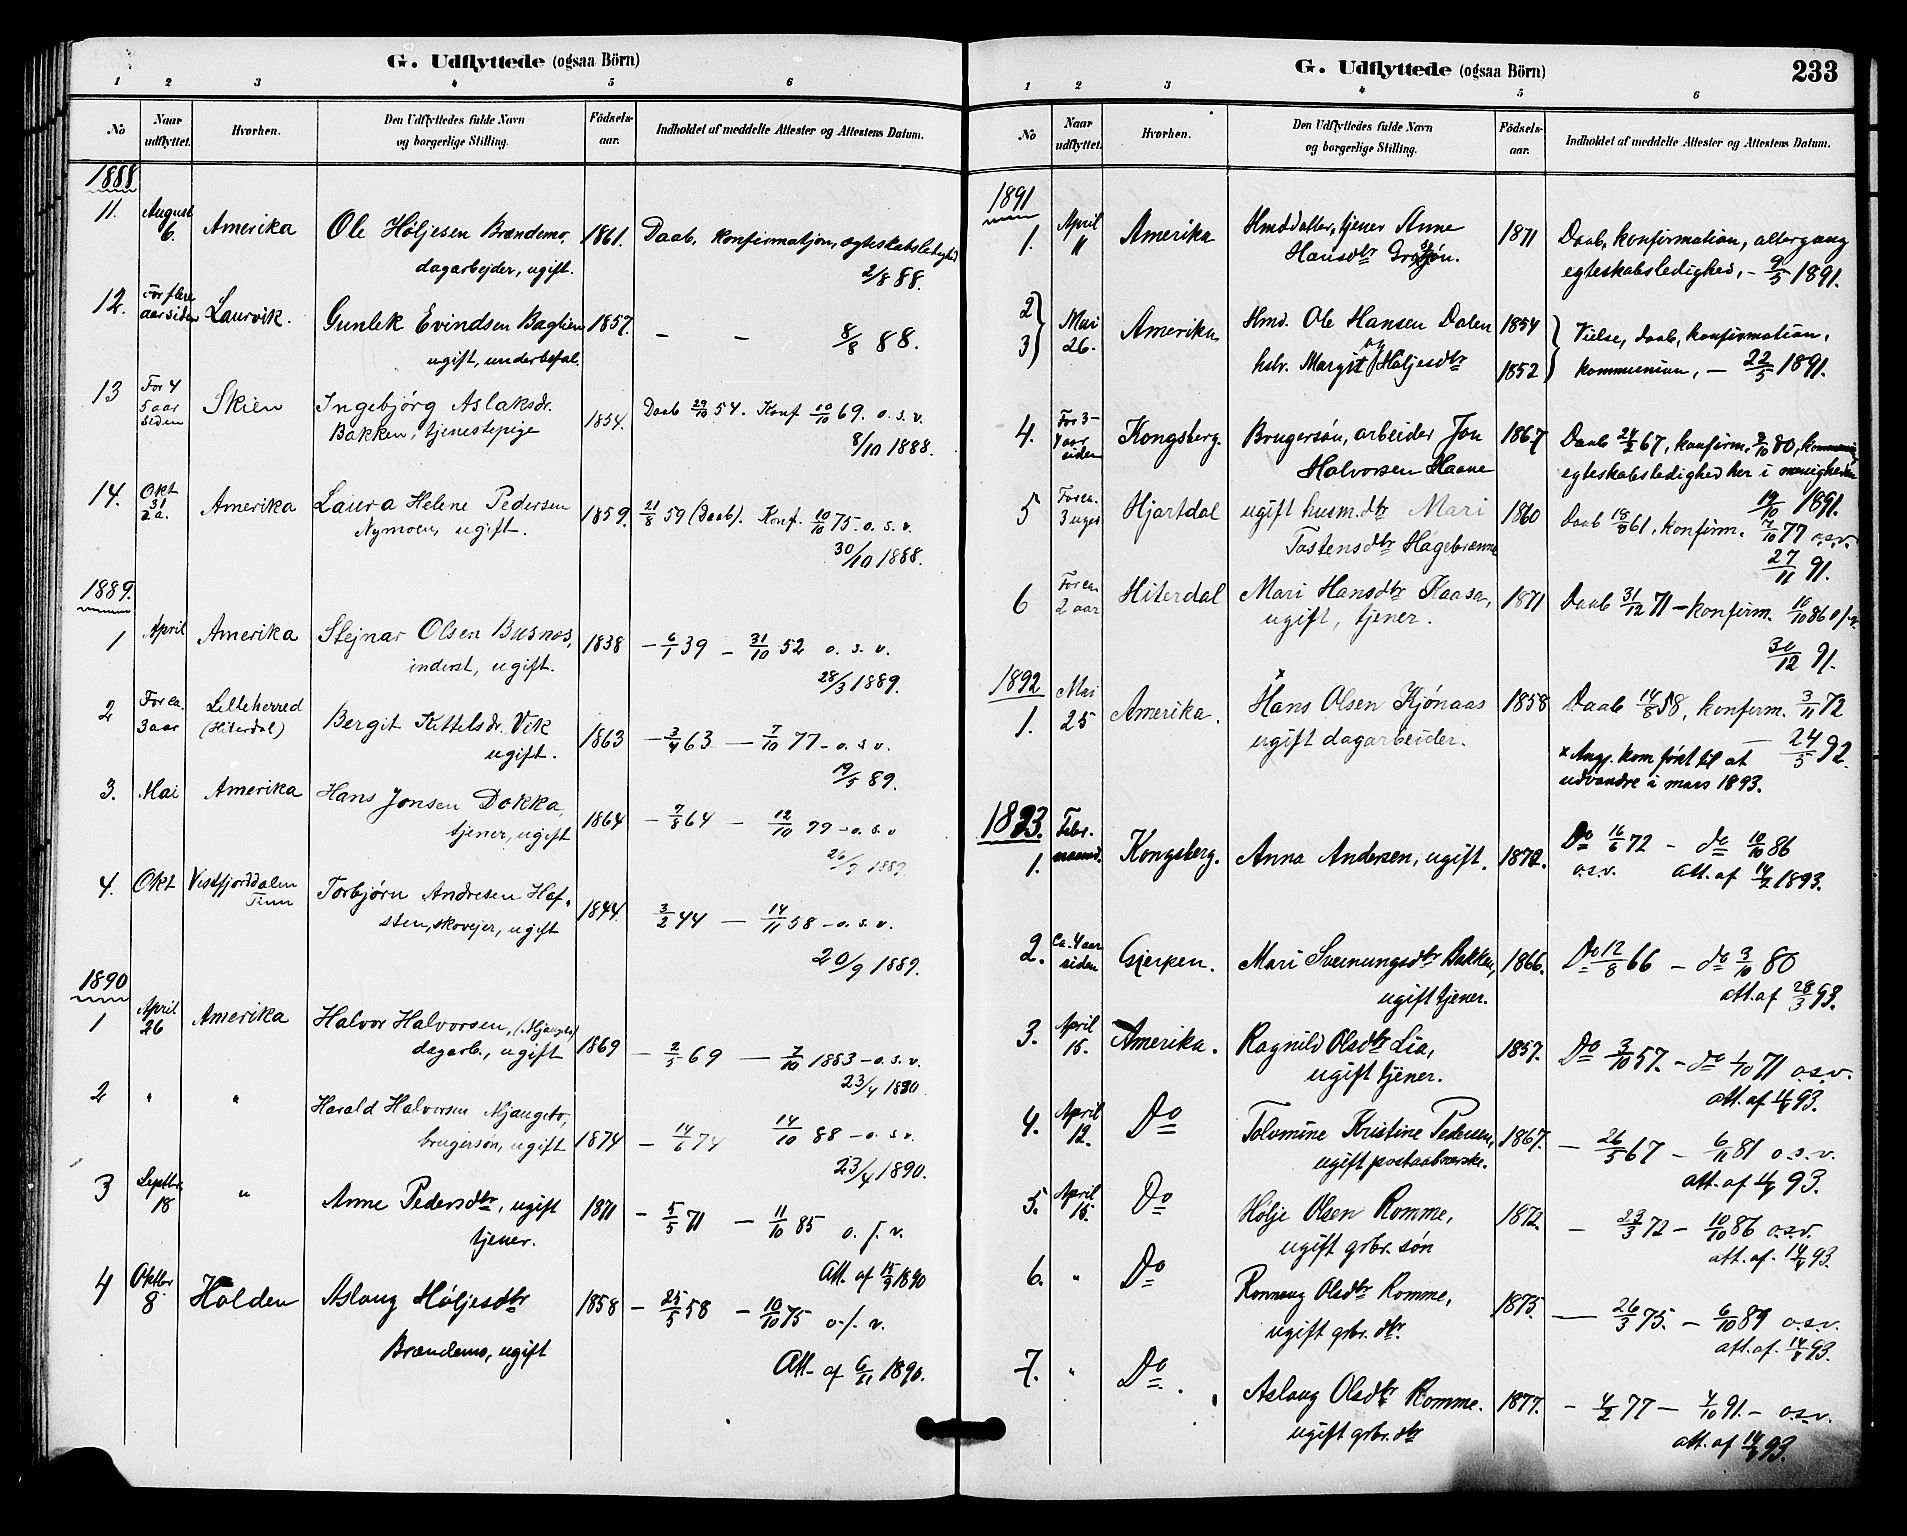 G. Udflyttede (ogsaa Börn)
1 2 3 4 5 6
No Naar udflyttet. Hvorhen. Den Udflyttedes fulde Navn og borgerlige Stilling. Födsels-aar. Indholdet af meddelte Attester og Attestens Datum.
1888
11. August 6. Amerika Ole Høljesen Brændemo, 1861. Daab, konfirmatjon, ægteskabsledighed
dagarbejder, ugift. 2/8 88.
12. For flere aar siden Laurvik. Gunlek Evindsen Baglien 1857. – – 8/8 88.
ugift, underbefal.
13 For 4 5 aar siden Skien Ingebjørg Aslaksdr. 1854. Daab 29/10 54. Konf 10/10 69. o. s. v.
Bakken, tjenestepige 8/10 1888.
14. Okt 31 Amerika Laura Helene Pedersen 1859. 21/8 59 (Daab). Konf. 10/10 75. o. s. v.
Nymoen, ugift. 30/10 1888.
1889.
1 April Amerika Stejnar Olsen Busnes, 1838 – 6/1 39 – 31/10 52 o. s. v.
inderst, ugift. 28/3 1889.
2 For ca. 3 aar Lilleherred (Hiterdal) Bergit Kittelsdr. Vik 1863 – 3/4 63 – 7/10 77 – o. s. v.
ugift. 19/5 89.
3. Mai Amerika Hans Jonsen Dokka, 1864 – 7/8 64 – 12/10 79 – o. s. v
tjener, ugift
4. Okt Vestfjorddalen Tinn Torbjørn Andresen Haf- 1844. 3/2 44 – 14/11 58 – o. s. v.
sten, skovejer, ugift 20/9 1889.
1890
1 April 26 Amerika Halvor Halvorsen, 1869 – 2/5 69 – 7/10 1883 – o. s. v.
dagarb., ugift 23/4 1890.
2 " " Harald Halvorsen 1874 – 14/6 74 14/10 88 – o. s. v.
brugersøn, ugift 23/4 1890.
3 Septbr. 18 " Anne Pedersdtr, ugift 1871 – 5/5 71 – 11/10 85 o. s. v.
tjener. Att. af 15/9 1890
4 Oktbr 8 Holden Aslaug Høljesdtr 1858 – 25/5 58 – 10/10 75 o. s. v.
Brændemo, ugift Att. af 6/11 1890.
G. Udflyttede (ogsaa Börn) 233
1 2 3 4 5 6
No Naar udflyttet. Hvorhen. Den Udflyttedes fulde Navn og borgerlige Stilling. Födsels-aar. Indholdet af meddelte Attester og Attestens Datum.
1891
1. April " Amerika Hmdsdatter, tjener Anne 1871 Daab, konfirmation, altergang
Hansdtr egteskabsledighed, – 9/5 1891.
2 3 Mai 26. Amerika. Hmd. Ole Hansen Dalen 1854 Vielse, daab, konfirmation,
hstr. Margit Høljesdtr 1852 kommunion, – 22/5 1891.
4. For 3-4 aar siden Kongsberg. Brugersøn, arbeider Jon 1867 Daab 24/2 67, konfirm.
Halvorsen Haane egteskabsledighed her i menigheden
19/10 1891.
5 For ca. 3 uger Hjartdal ugift husm.dtr Mari 1860 Daab 61, konfirm. 7/10 77 o.s.v.
Tostensdtr Hagebrænne 27/11 91.
6 For ca. 2 aar Hiterdal Mari Hansdtr Kaasa, 1871 Daab 31/12 71 – konfirm. 10/10 86 o.s.v.
ugift, tjener. 30/12 91.
1892
1. Mai 25 Amerika. x Hans Olsen Kjønaas 1858 Daab 14/8 58, konfirm. 3/11 72
ugift dagarbeider. – 24/5 92.
x Angj. kom først til at
udvandre i mars 1893.
1893.
1. Febr. maaned. Kongsberg. Anna Andersen, ugift. 1872. Do 16/6 72 – do 10/10 86
o.s.v. Att. af 14/2 1893.
2. Ca. 4 aar siden Gjerpen. Mari Sveinungsdtr Bakken, 1866. Do 12/8 66 – do 3/10 80
ugift tjener. att. af 28/3 93.
3. April 15. Amerika. Ragnild Olsdtr Lia, 1857. Do 3/10 57. – do 1/10 71 o.s.v.
ugift tjener. att. af 4/4 93.
4. April 12. Do Tolvmine Kristine Pedersen, 1867. – 26/5 67 – 6/11 81 o.s.v.
ugift att. af 4/4 93.
5. April 15. Do Hølje Olsen Romme, 1872. – 23/3 72 – 10/10 86 o.s.v.
ugift grbr. søn att. af. 14/4 93.
6. " Do Ronnaug Olsdtr Romme, 1875. – 26/3 75. – 6/10 89 o.s.v.
ugift grbr. dtr. att. af. 14/4 93.
7. " Do. Aslaug Olsdtr Romme. 1877. – 4/2 77 – 4/10 91. – o.s.v.
ugift grbr. dtr att. af 14/4 93.